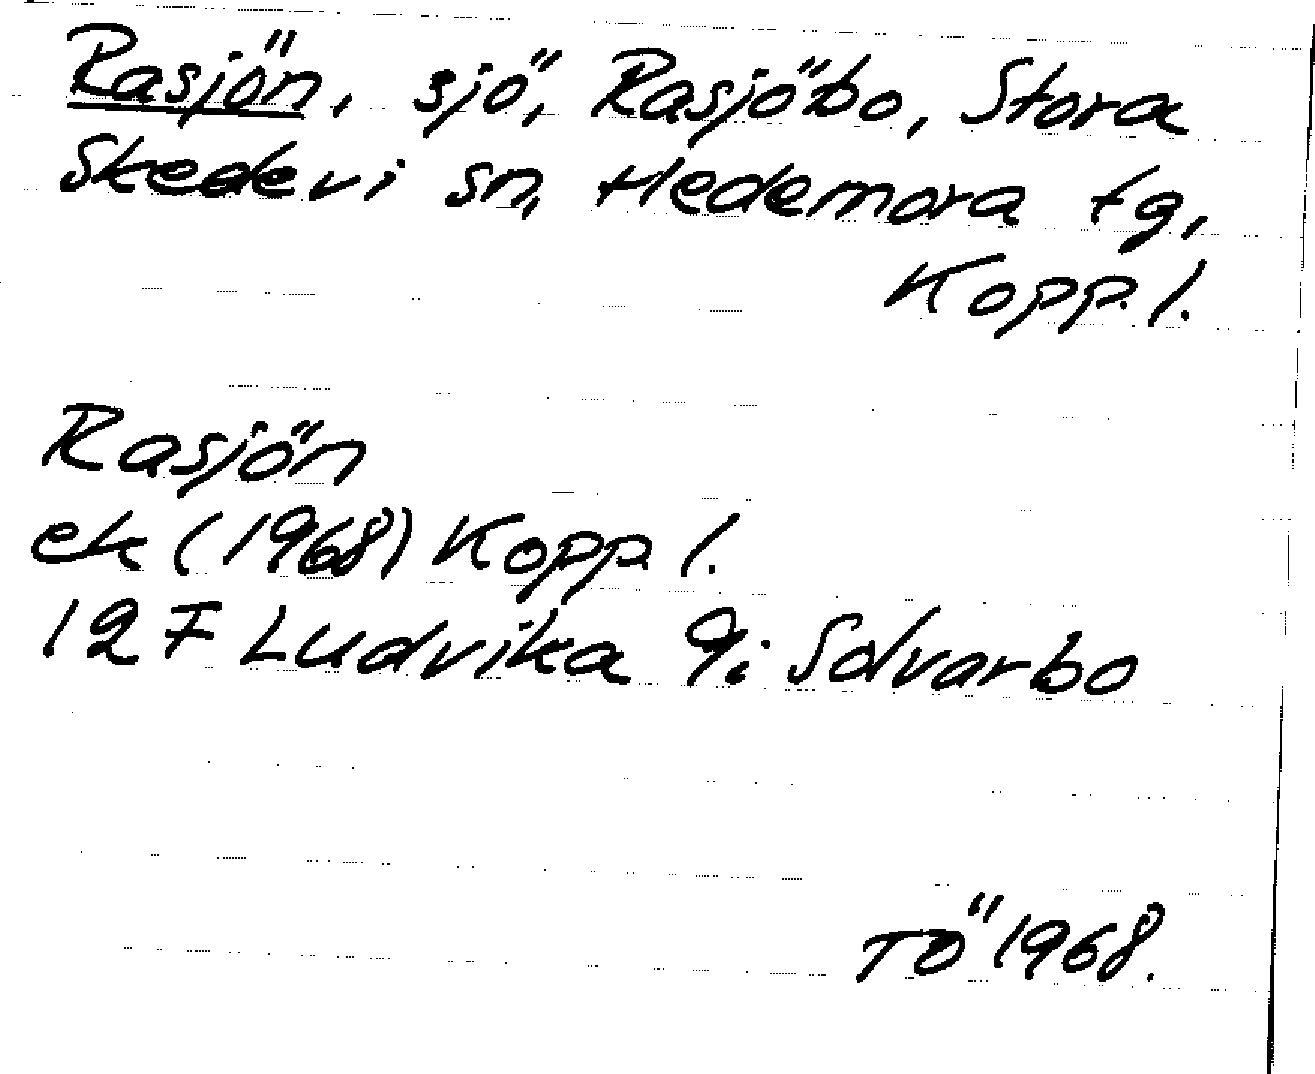 Rasjön, sjö, Rasjöbo, Stora
Skedevi sn, Hedemora tg,
Kopp. l.
Rasjön
ek (1968) Kopp. l.
12 F Ludvika 9i Solvarbo
TÖ 1968.